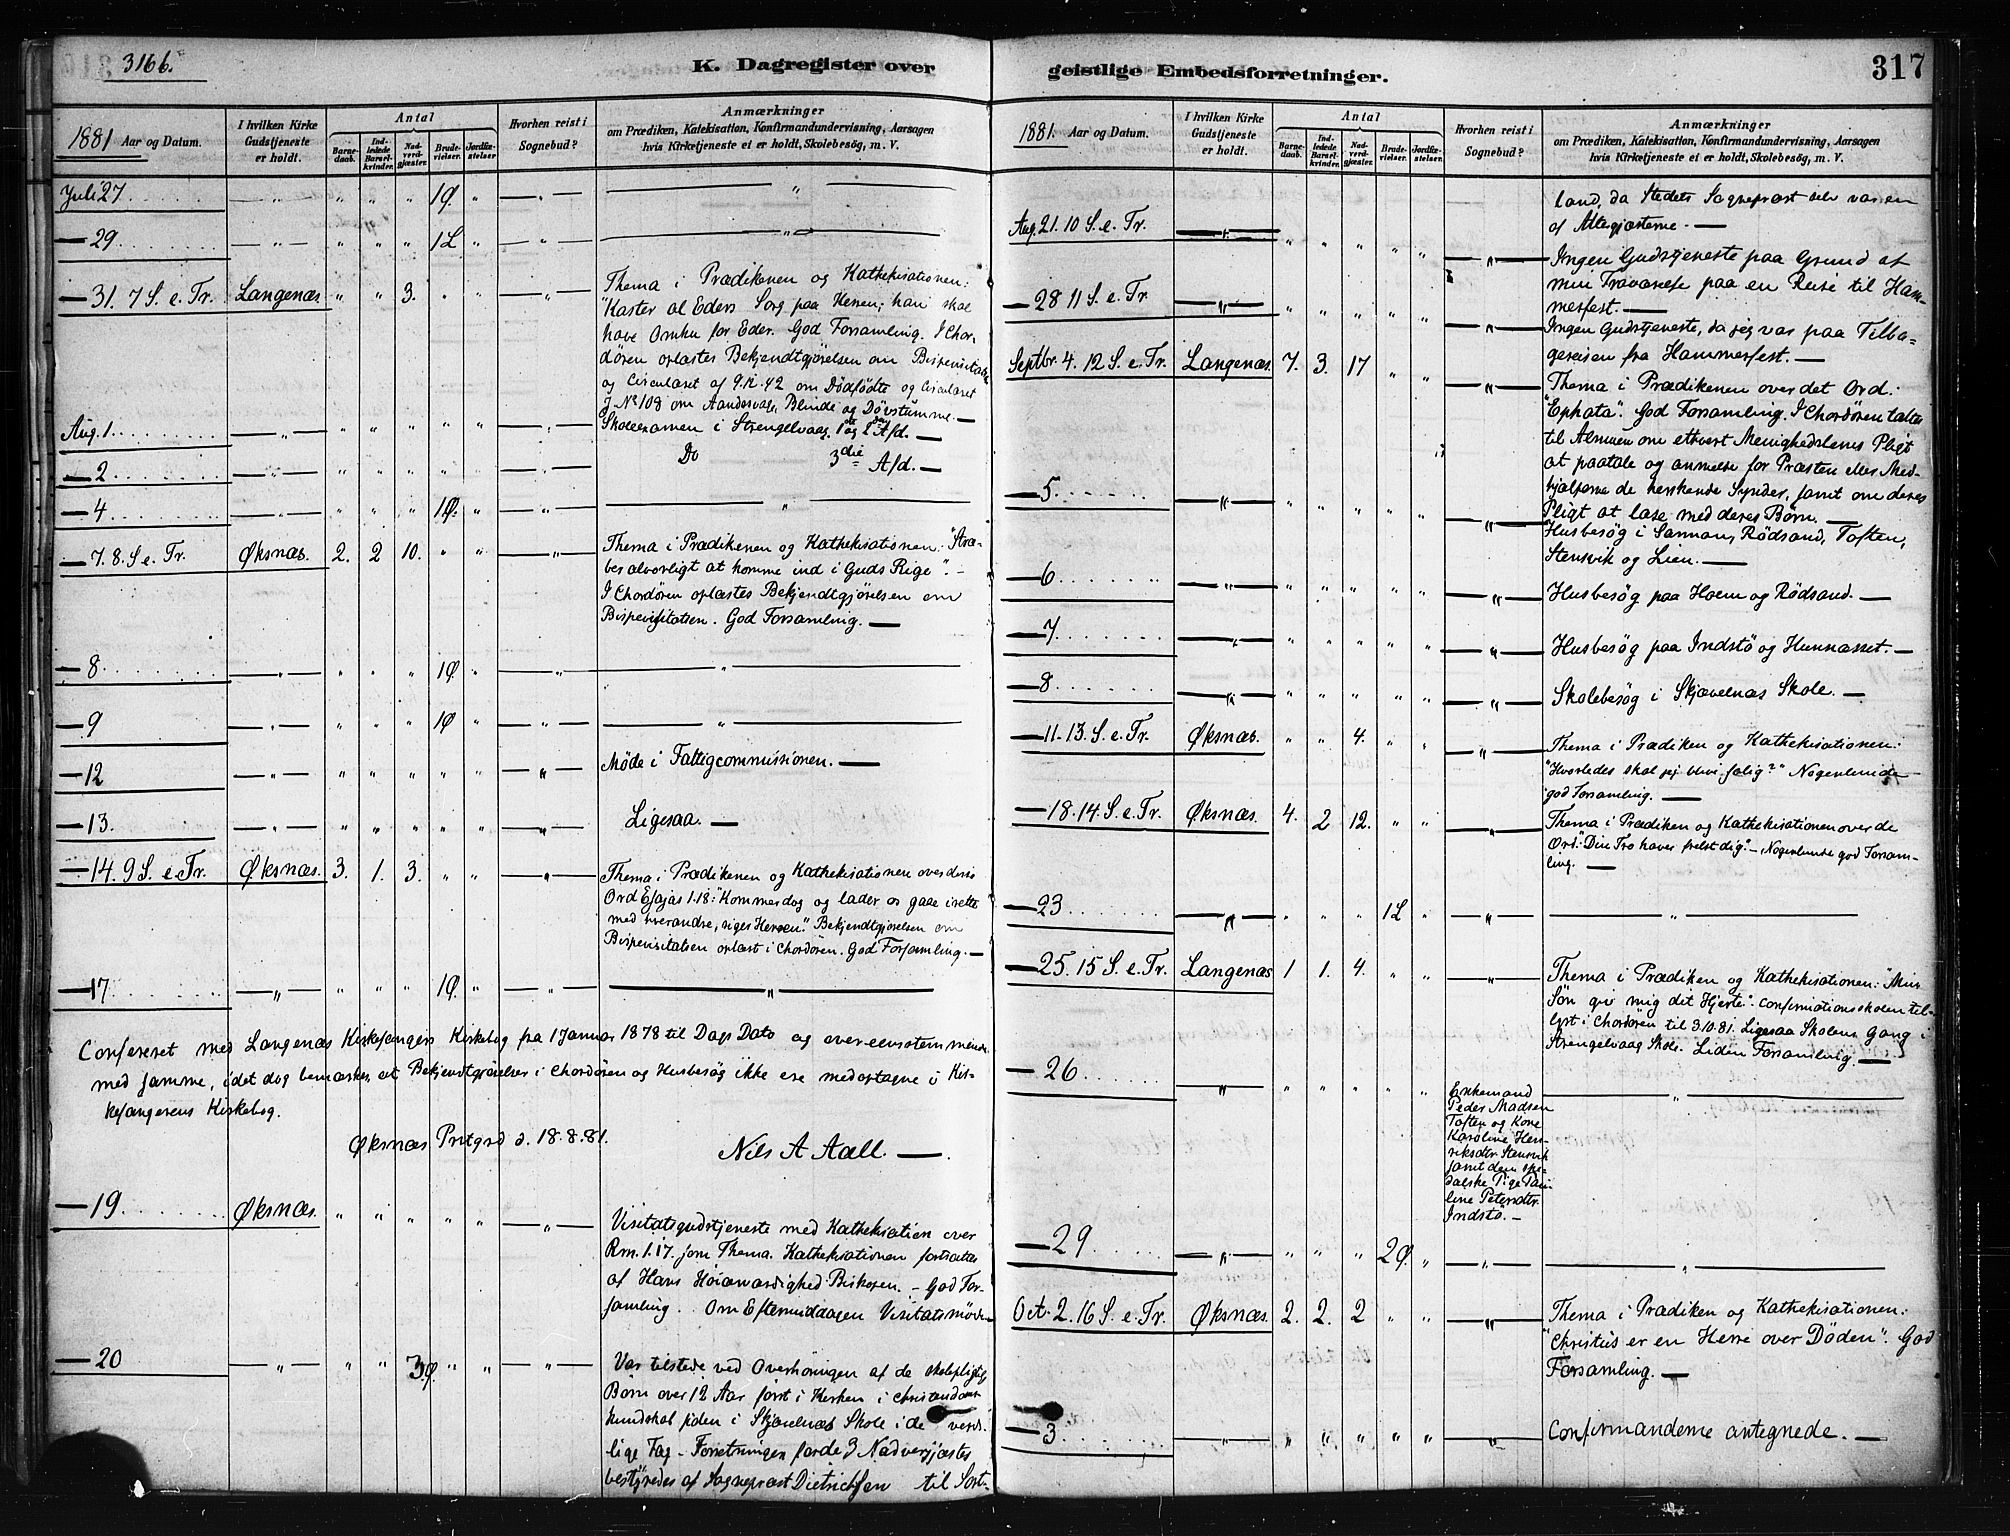 316b.
K. Dagregister over
1881 Aar og Datum.
I hvilken Kirke Gudstjeneste er holdt.
Antal
Barnedaab.
Indledede Barselkvinder.
Nadverdgjæster.
Brudevielser.
Jordfæstelser
Hvorhen reist i Sognebud?
Anmærkninger
om Prædiken, Katekisation, Konfirmandundervisning, Aarsagen
hvis Kirketjeneste ei er holdt, Skolebesøg, m. V.
Juli 27 — " — " " " 1Ø. " — " — — " —
— 29 — " — " " " 1L " — " — — " —
— 31. 7 S. e. Tr. Langenæs " " 3. " " — " —
Thema i Prædikenen og Kathekisationen:
"Kaster al Eders Sorg paa Herren; han skal
have Omhu for Eder. God Forsamling. I Chor-
døren oplæstes Bekjendtgjørelsen om Bispevisitats
og Circulæret af 9.12.42 om Dødfødte og Circulæret
J No 108 om Aandssvage, Blinde og Døvstumme. —
Aug. 1. — " — " " " " " — " — Skoleexamen i Strengelvaag. 1ste og 2den Afd. —
— 2 — " — " " " " " — " — Do 3die Afd. —
— 4 — " — " " " 1Ø. " — " — — " —
— 7. 8. S e Tr. Øksnæs. 2. 2 10. " " — " —
Thema i Prædikenen og Kathekisationen: "Stræ-
ber alvorligt at komme ind i Guds Rige". —
I Chordøren oplæstes Bekjendtgjørelsen om
Bispevisitatsen. God Forsamling. —
— 8 — " — " " " 1Ø " — " — — " —
— 9 — " — " " " 1Ø " — " — — " —
— 12 — " — " " " " " — " — Møde i Fattigcommissionen. —
— 13. — " — " " " " " — " — Ligesaa. —
— 14. 9 S. e. Tr. Øksnæs. 3. 1. 3. " " — " —
Thema i Prædikenen og Kathekisationen over
Ord Esajas 1.18: "Kommer dog og lader os gaae irette
med hverandre, siger Herren". Bekjendtgjørelsen om
Bispevisitatsen oplæst i Chordøren. God Forsamling. —
— 17 — " — " " " 1Ø. " — " — — " —
Confereret med Langenæs Kirkesangers Kirkebog fra 1 Januar 1878 til Dags Dato og overeensstemmende
med samme, idet dog bemærkes, at Bekjendtgjørelser i Chordøren og Husbesøg ikke ere medoptagne i Kir-
kesangerens Kirkebog.
Øksnæs Prstgrd d. 18.8.81.
Nils A Aall. —
— 19 Øksnæs. " " " " " — " —
Visitatsgudstjeneste med Kathekisation over
Rm. 1.17. som Thema. Kathekisationen fortsattes
af Hans Høiærværdighed Biskopen. — God For-
samling. Om Eftermiddagen Visitatsmøde
— 20 — " — " " 3Ø. " " — " —
Var tilstede ved Overhøringen af de skolepligtige
Børn over 12 Aar først i Kirken i Christendoms-
kundskab siden i Skjavelnæs Skole i de verds-
lige Fag — Forretningen for de 3 Nadvergjæster
bestyredes af Sogneprest Dietrichsen til Sort-
geistlige Embedsforretninger.
317
1881. Aar og Datum.
I hvilken Kirke Gudstjeneste er holdt.
Antal
Barnedaab.
Indledede Barselkvinder.
Nadverdgjæster.
Brudevielser.
Jordfæstelser.
Hvorhen reist i Sognebud?
Anmærkninger
om Prædiken, Katekisation, Konfirmandundervisning, Aarsagen
hvis Kirketjeneste ei er holdt, Skolebesøg, m. V.
land, da Stedets Sogneprest selv var en
af Altergjæsterne. —
Aug. 21. 10 S. e. Tr. — " — " " " " " — " —
Ingen Gudstjeneste paa Grund af
min Fraværelse paa en Reise til Ham-
merfest. —
— 28 11 S. e Tr — " — " " " " " — " —
Ingen Gudstjeneste, da jeg var paa Tilba-
gereisen fra Hammerfest. —
Septbr. 4. 12 S. e Tr. Langenæs. 7. 3. 17 " " — " —
Thema i Prædikenen over det Ord:
"Ephata". God Forsamling. I Chordøren taltes
til Almuen om ethvert Menighedslems Pligt
at paatale og anmelde for Præsten eller Med-
hjælperne de herskende Synder, samt om deres
Pligt at læse med deres Børn. —
— 5. — " — " " " " " — " —
Husbesøg i Sannan, Rødsand, Toften,
Stensvik og Lien. —
— 6 — " — " " " " " — " — Husbesøg paa Hoem og Rødsand. —
— 7 — " — " " " " " — " — Husbesøg paa Indstø og Hunnæsset. —
— 8 — " — " " " " " — " — Skolebesøg i Skjavelnæs Skole. —
— 11. 13. S. e. Tr. Øksnæs. " " 4. " " — " —
Thema i Prædiken og Kathekisationen:
"Hvorledes skal jeg blive salig?" Nogenlunde
god Forsamling. —
— 18. 14. S. e. Tr. Øksnæs. 4. 2 12. " " — " —
Thema i Prædiken og Kathekisationen over de
Ord: "Din Tro haver frelst dig". — Nogenlunde god Forsam-
ling. —
— 23 — " — " " " 1L " — " — — " —
— 25. 15 S. e. Tr. Langenæs 1 1. 4. " " — " —
Thema i Prædiken og Kathekisationen: "Min
Søn giv mig dit Hjerte". Confirmationsskolen til-
lyst i Chordøren til 3.10.81. Ligesaa Skolens Gang i
Strengelvaag Skole. Liden Forsamling. —
— 26 — " — " " " " "
Enkemand
Peder Madsen
Toften og Kone
Karoline Hen-
riksdtr. Stensvik
samt den spe-
dalske Pige Pau-
line Petersdtr.
Indstø. —
— 29 — " — " " " 2Ø. " — " — — " —
Oct. 2. 16 S. e. Tr. Øksnæs. 2. 2. 2 " " — " —
Thema i Prædiken og Kathekisationen:
"Christus er en Herre over Døden". God
Forsamling. —
— 3 — " — " " " " " — " — Confirmanderne antegnede. —